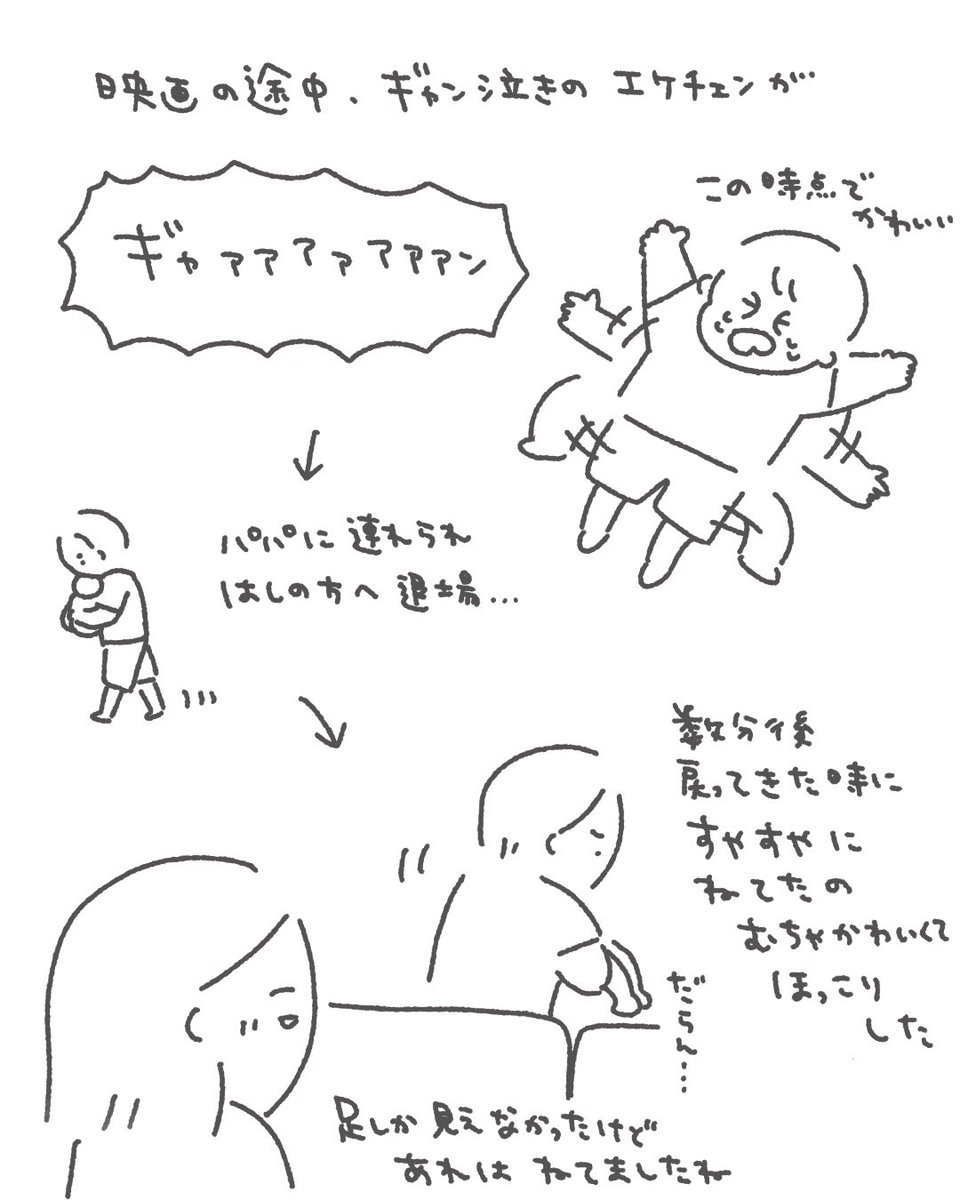 映画の途中、ギャン泣きの エケチェンが
この時点で
かわいい
ギャァァァァァァァァン
パパに連れられ
はしの方へ退場…
数分後
戻ってきた時に
すやすやに
ねてたの
むちゃかわいくて
ほっこり
した
だらん…
足しか見えなかったけど
あれは ねてましたね